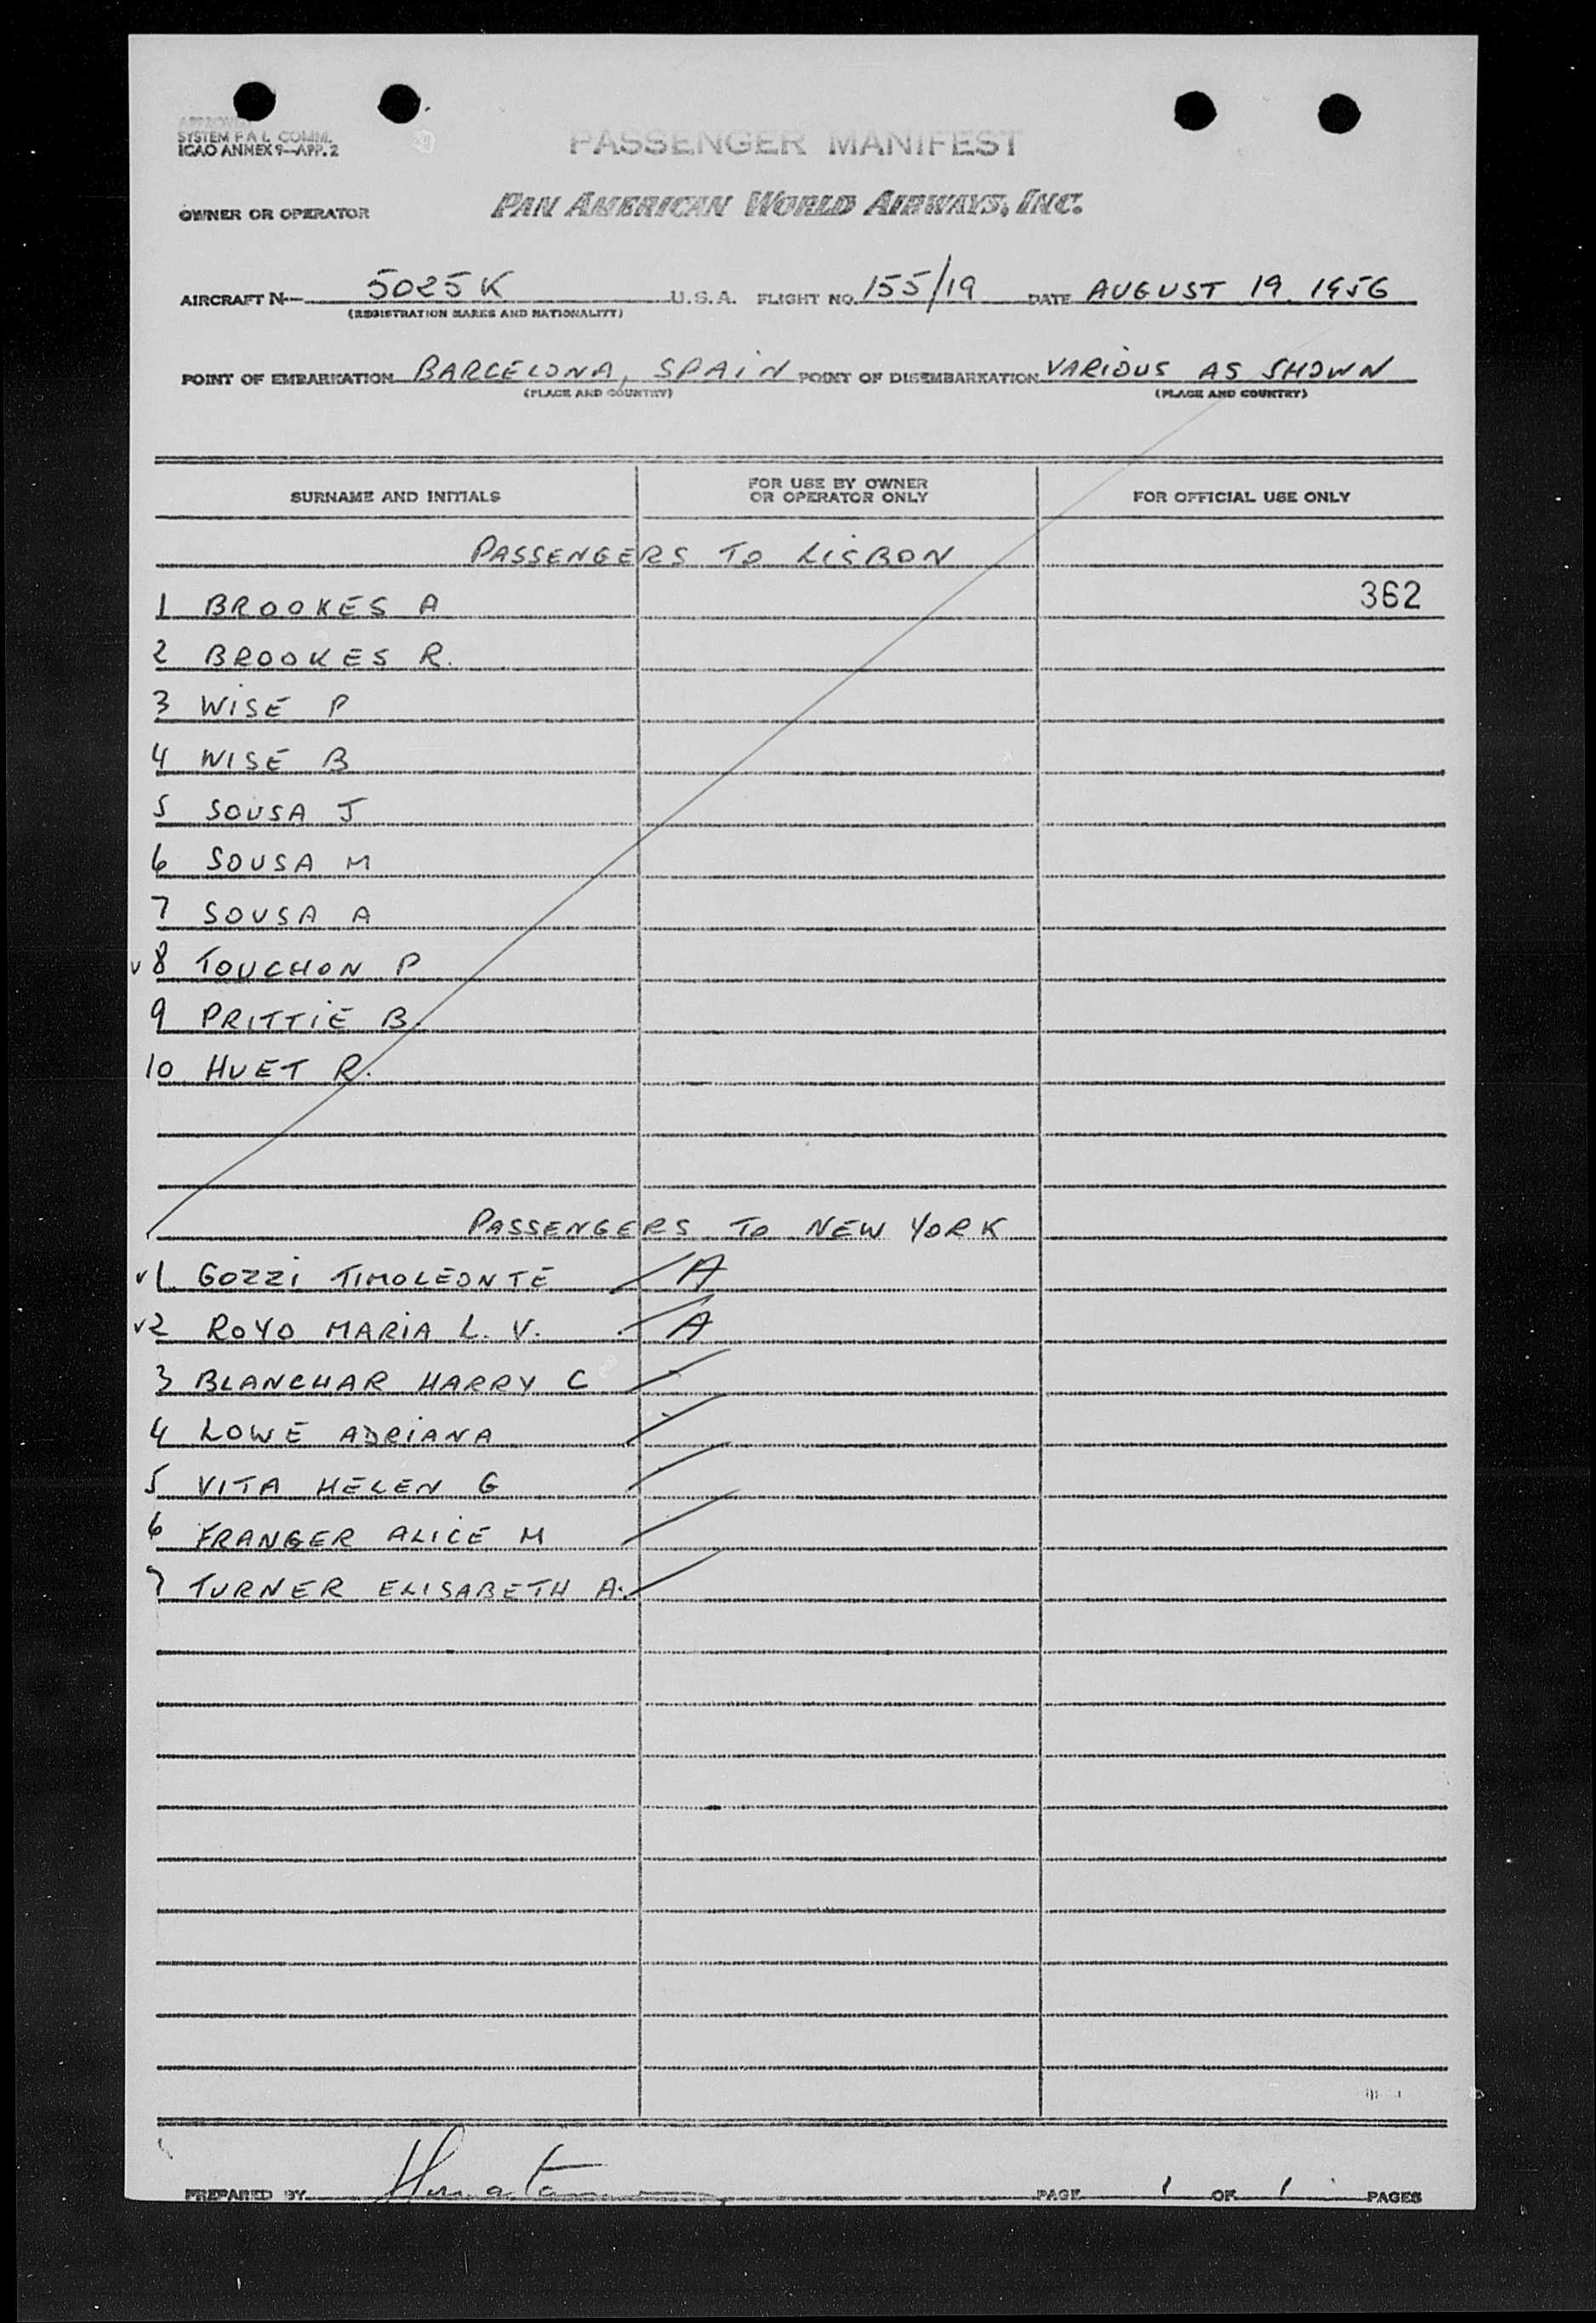 APPROVED
SYSTEM F.A.L. COMM.
ICAO ANNEX 9—APP. 2
PASSENGER MANIFEST
OWNER OR OPERATOR PAN AMERICAN WORLD AIRWAYS, INC.
AIRCRAFT N— 5025K U.S.A. FLIGHT NO. 155/19 DATE AUGUST 19 1956
(REGISTRATION MARKS AND NATIONALITY)
POINT OF EMBARKATION BARCELONA, SPAIN POINT OF DISEMBARKATION VARIOUS AS SHOWN
(PLACE AND COUNTRY) (PLACE AND COUNTRY)
SURNAME AND INITIALS FOR USE BY OWNER OR OPERATOR ONLY FOR OFFICIAL USE ONLY
PASSENGERS TO LISBON
1 BROOKES A 362
2 BROOKES R.
3 WISE P
4 WISE B
5 SOUSA J
6 SOUSA M
7 SOUSA A
v 8 TOUCHON P
9 PRITTIE B.
10 HUET R.
PASSENGERS TO NEW YORK
v1 GOZZI TIMOLEONTE A
v2 ROYO MARIA L. V. A
3 BLANCHAR HARRY C
4 LOWE ADRIANA
5 VITA HELEN G
6 FRANGER ALICE M
7 TURNER ELISABETH A.
PREPARED BY PAGE 1 OF 1 PAGES